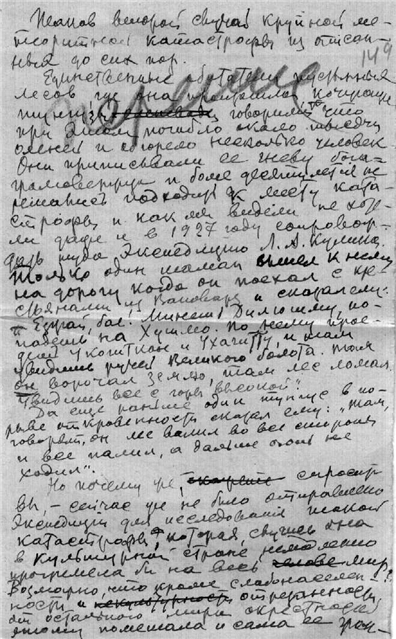 Таков второй случай крупной ме-
теоритной катастрофы из описан-
ных до сих пор.
149
Единственные обитатели пустынных
лесов где она
тунгусы, говорили, что
при этом погибло около тысячи
оленей и сгорело несколько человек.
Они приписывали ее гневу бога-
громовержца и более десяти лет не
решались подходить к месту ката-
строфы и как мы видели не хоте-
ли даже и в 1927 году сопровож-
дать туда экспедицию Л. А. Кулика.
Только один шаман вышел к нему
на дорогу когда он поехал с кре-
стьянами из Вановары и сказал ему:
по-
падешь на Хушмо. По нему прой-
дешь Укогиткон и Ухагитту, и там
увидишь ручей Великого болота. Там
он ворочал землю, там лес ломал.
Увидишь все с горы высокой".
Да еще раньше один тунгус в по-
рыве откровенности сказал ему: "Там,
говорят, он лес валил во все стороны
и все палил, а дальше огонь не
ходил".
Но почему же, спросите
вы, - сейчас же не было отправлено
экспедиции для исследования такой
катастрофы, которая, случись она
в культурной стране немедленно
прогремела бы на весь мир?
Возможно, что кроме слабонаселен-
ности и отрезанности
от остального мира окрестностей
этому помешала и сама ее гран-